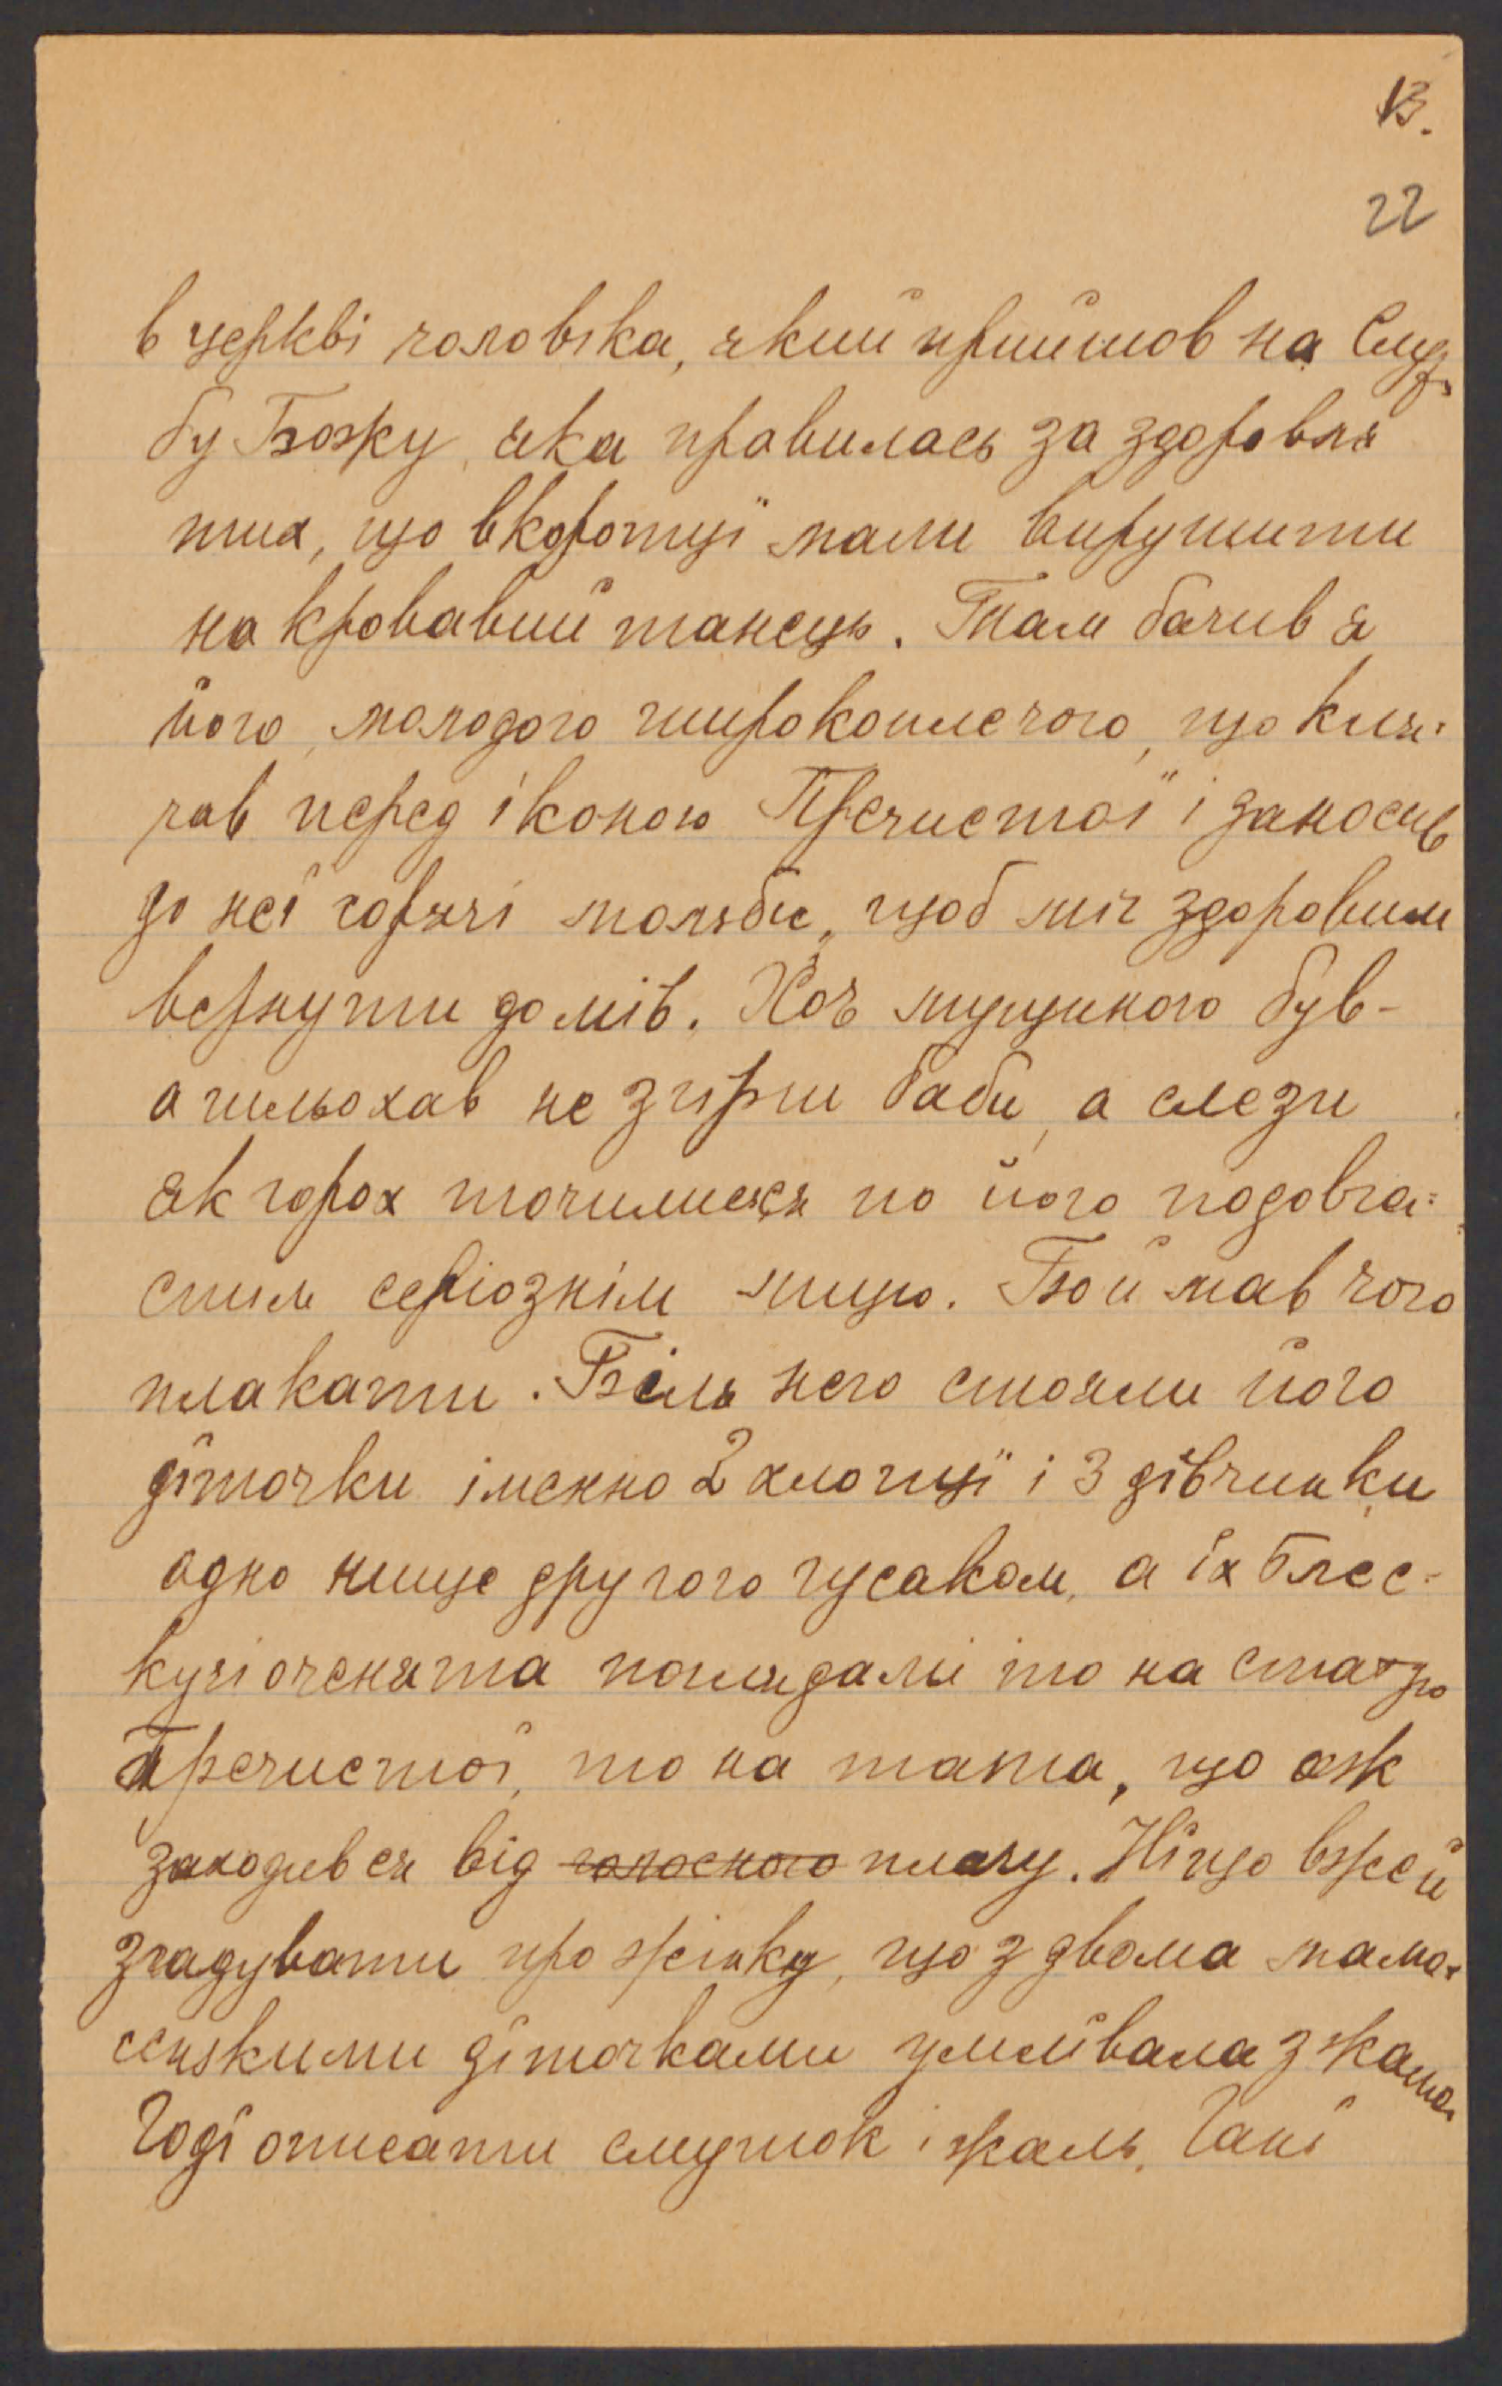 13.
22
в церкві чоловіка, який прийшов на Служ
бу Божу, яка правилась за здоровля
тих, що вкоротці мали вирушити
на кровавий танець. Там бачив я
його, молодого широкоплечого, що кля-
чав перед іконою Пречистої і заносив
до неї горячі мольби, щоб міг здоровим
вернути домів. Хоч мущиною був -
а шльохав не згірш баби, а слези
як горох точилися по його подовга=
стим серіознім лицю. Бо й мав чого
плакати. Біля него стояли його
діточки іменно 2 хлопці і 3 дівчинки
одно нище другого гусаком, а їх блес=
кучі оченята поглядали то на статую
Пречистої, то на тата, що аж
заходився від голосного плачу. Ніщо вже й
згадувати про жінку, що з двома мама-
сенькими діточками умлівала з жалю.
Годі описати смуток і жаль. Гані